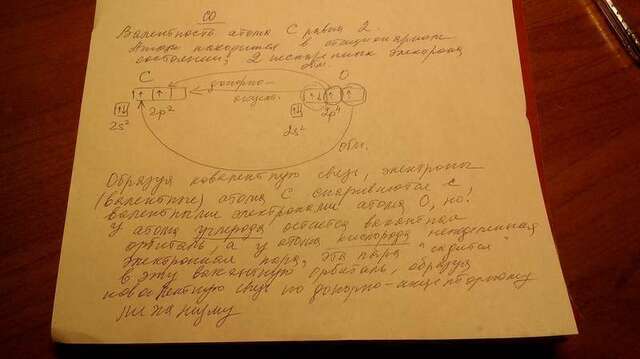 CO
Валентность атома C равна 2.
Атом находится в стационарном
состоянии, 2 неспаренных электрона
обм.
C
O
донорно-
акцепт.
2s²
2p²
2s²
2p⁴
обм.
Образуя ковалентную связь, электроны
(валентные) атома C спариваются с
валентными электронами атома O, но!
У атома углерода остается вакантная
орбиталь, а у атома кислорода неподеленная
электронная пара, эта пара "садится"
в эту вакантную орбиталь, образуя
ковалентную связь по донорно-акцепторному
механизму